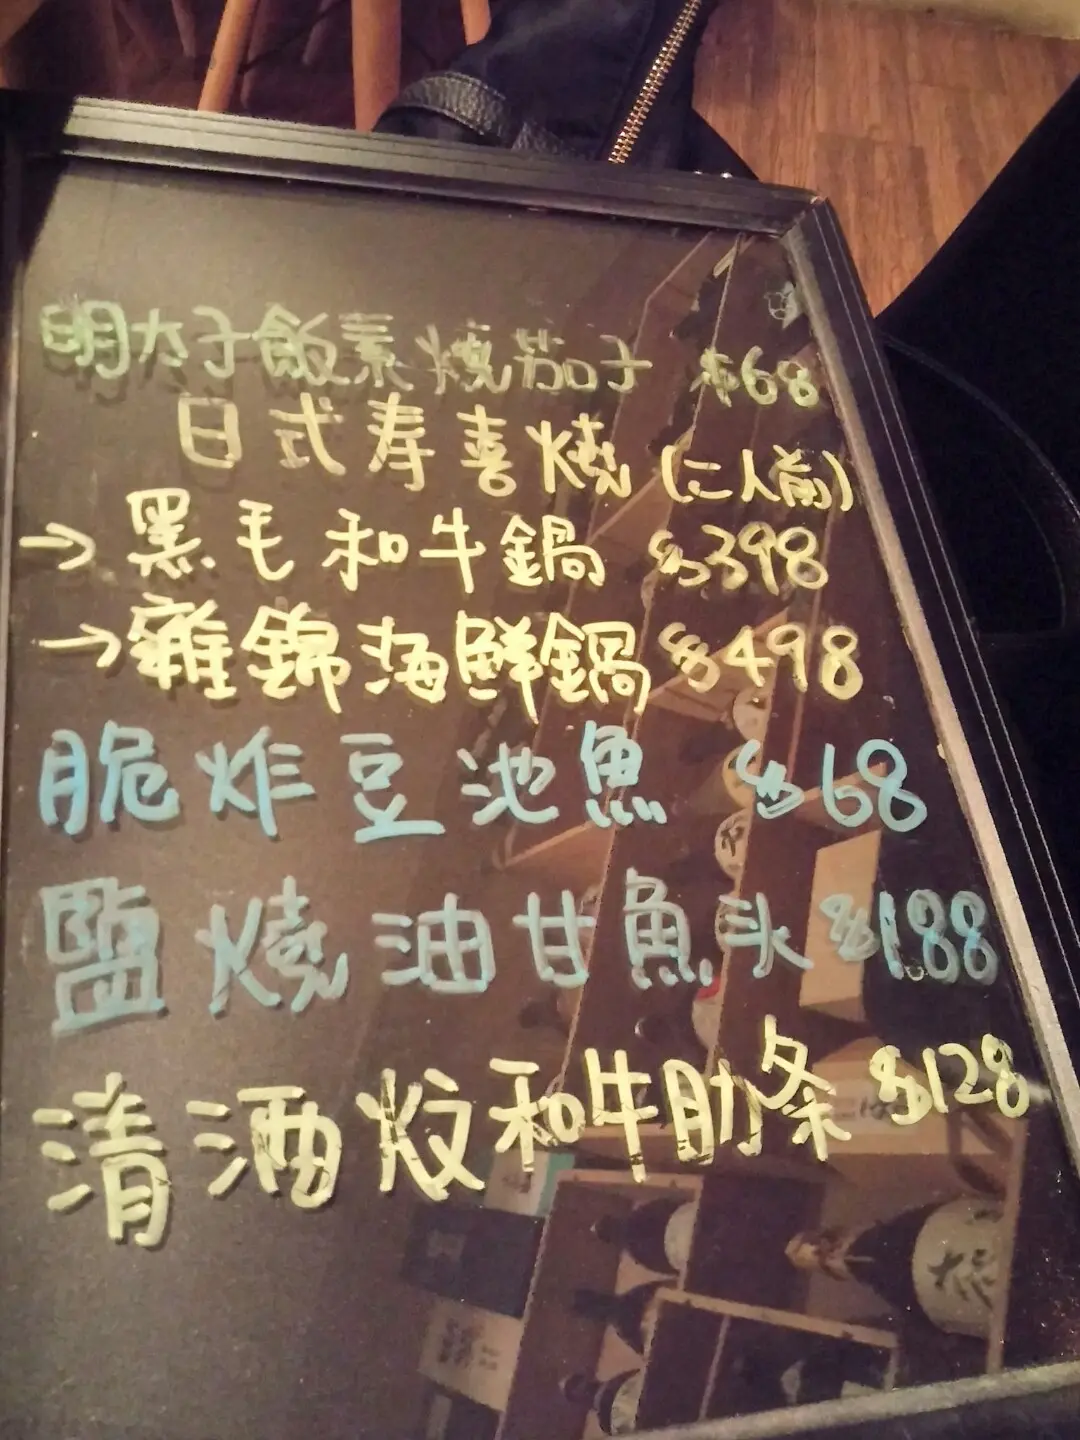 明太子飯素燒茄子 $68
日式寿喜燒(二人前)
→黑毛和牛鍋 $398
→雜錦海鮮鍋 $498
脆炸豆池魚 $68
鹽燒油甘魚头 $188
清酒炆和牛肋条 $128